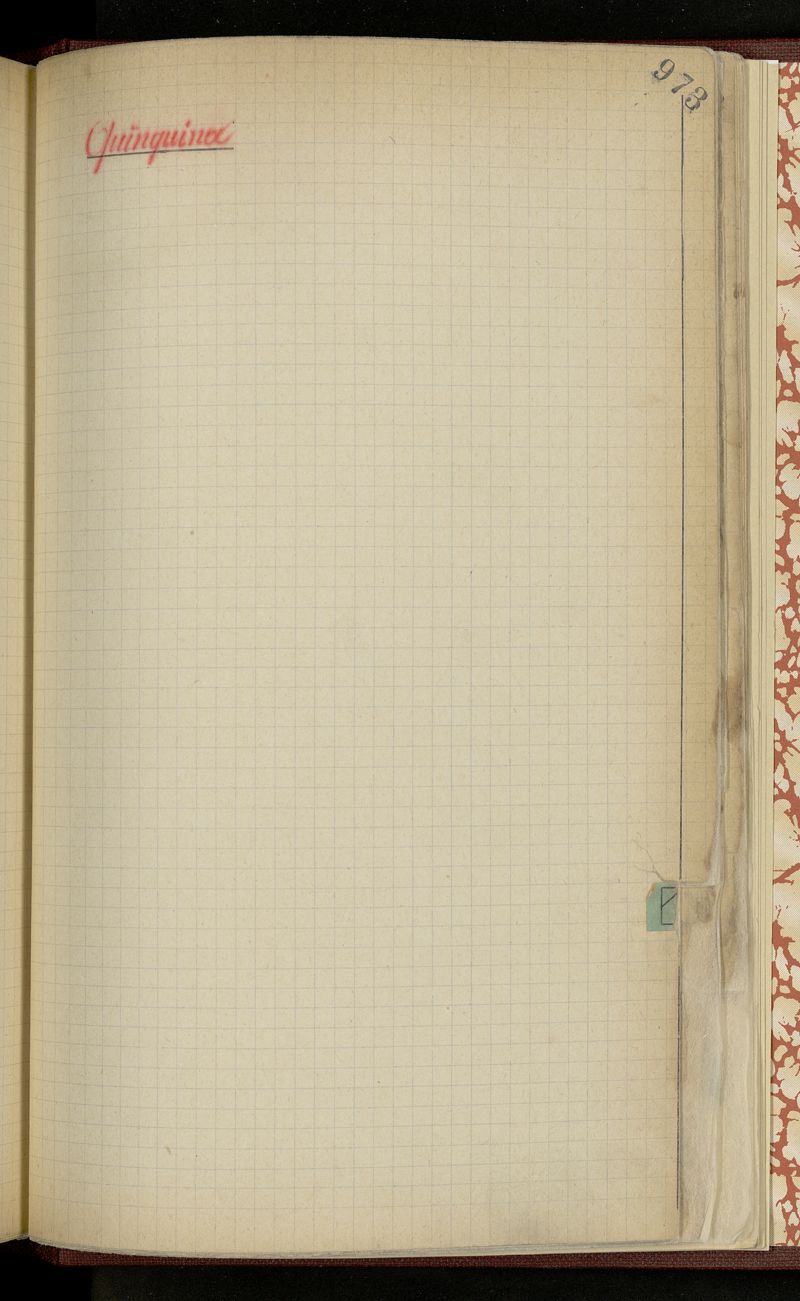 973
Quinquina